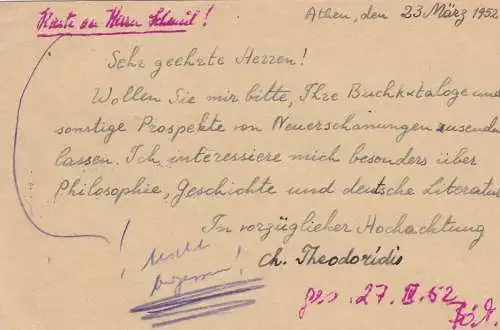 Karte an Herrn Schmiel!
Athen, den 23 März 1952
Sehr geehrte Herren!
Wollen Sie mir bitte, Ihre Buchkataloge und
sonstige Prospekte von Neuerscheinungen zusenden
lassen. Ich interessiere mich besonders über
Philosophie, Geschichte und deutsche Literatur
In vorzüglicher Hochachtung
Ch. Theodoridis
! nicht
vergessen!
ges. 27. III. 52